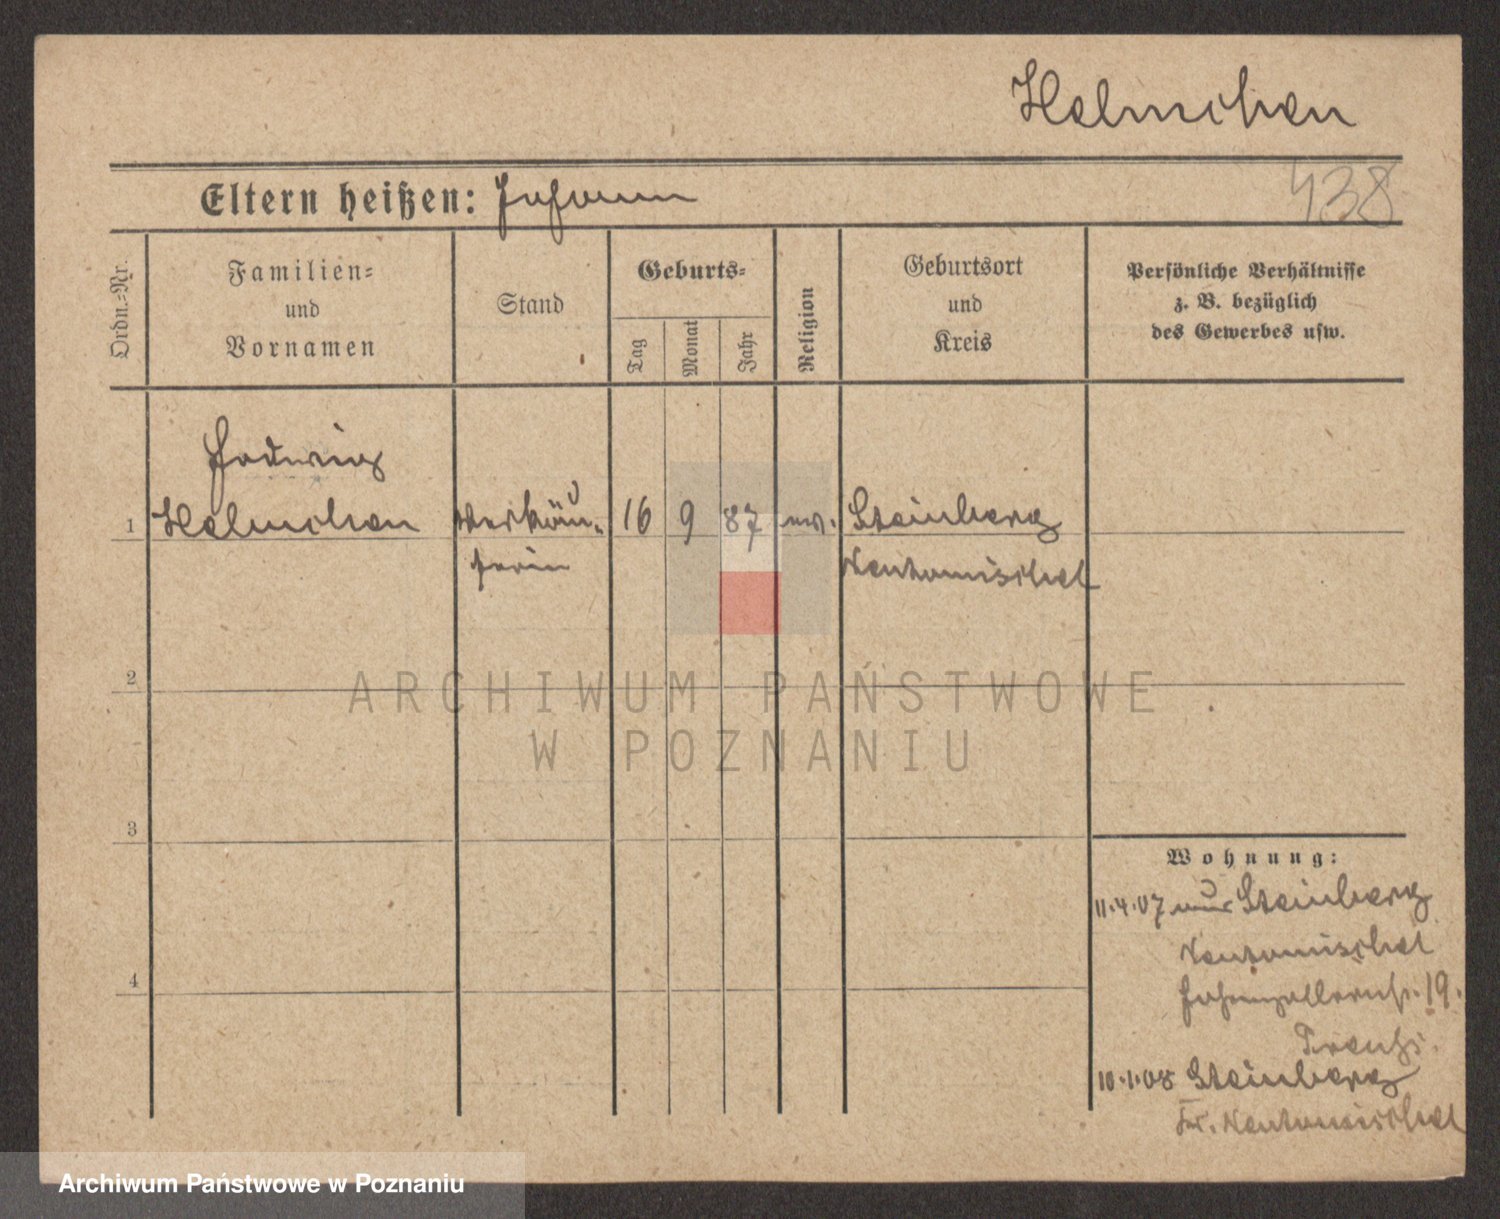 Helmchen
438
Eltern heißen: Johann
Ordn.=Nr.
Familien=
und
Vornamen
Stand
Geburts=
Tag
Monat
Jahr
Religion
Geburtsort
und
Kreis
Persönliche Verhältnisse
z. B. bezüglich
des Gewerbes usw.
Hedwig
1 Helmchen Verkäu= 16 9 87 ev. Steinberg
ferin Neutomischel
2
ARCHIWUM PAŃSTWOWE
W POZNANIU
3
Wohnung:
11.4.07 aus Steinberg
Neutomischel
Hohenzollernstr. 19.
4
10.1.08 Steinberg
Kr. Neutomischel
Archiwum Państwowe w Poznaniu